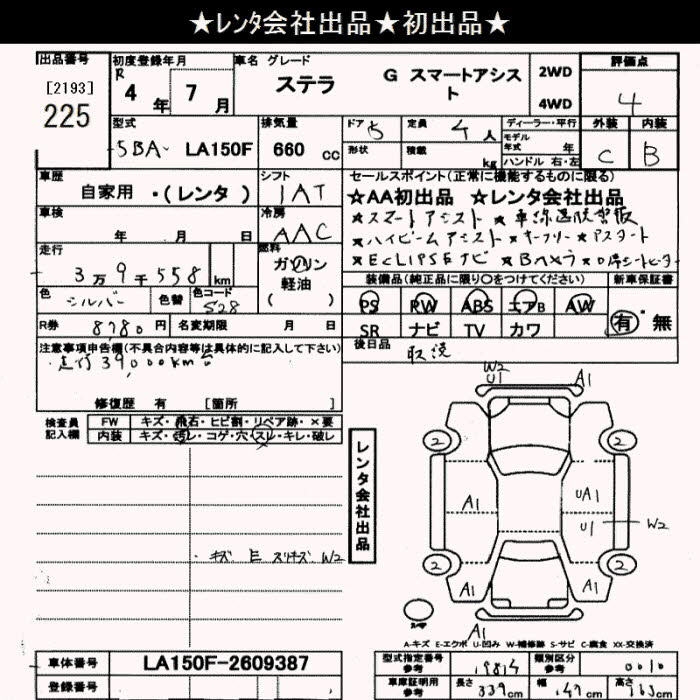 ★レンタ会社出品★初出品★
出品番号 初度登録年月 車名 グレード 評価点
[2193] R 4年 7月 ステラ G スマートアシスト 2WD 4WD 4
225
型式 排気量 ドア 5 定員 4人 ディーラー・平行 外装 内装
5BA- LA150F 660cc 形状 積載 kg モデル年式 年 ハンドル 右・左 C B
車歴 シフト セールスポイント(正常に機能するものに限る)
自家用 ・(レンタ) IAT ★AA初出品 ★レンタ会社出品
車検 年 月 日 冷房 AAC ★スマートアシスト
★ハイビームアシスト ★キーフリー ★Pスタート
走行 3万9千558km 燃料 ガソリン 軽油 ( ) ★ECLIPSEナビ ★Bカメラ
装備品(純正品に限り○をつけてください) 新車保証書
色 シルバー 色替 色コード S28 PS PW ABS エアB AW 有・無
R券 8780円 名変期限 月 日 SR ナビ TV カワ
注意事項申告欄(不具合内容等は具体的に記入して下さい) 後日品 取説
走行39,000km台
修復歴 有 [箇所 ]
検査員記入欄 FW キズ・飛石・ヒビ割・リペア跡・×要
内装 キズ・汚レ・コゲ・穴・スレ・キレ・破レ
レンタ会社出品
W2
U1 A1
2 2
A1 UA1
U1 W2
・キズ E スリキズ W2
2 2
A1 A1
A1
A-キズ E-エクボ U-凹み W-補修跡 S-サビ C-腐食 XX-交換済
車体番号 LA150F-2609387 型式指定番号 参考 19814 類別区分 参考 0010
登録番号 車庫証明用 参考 長さ 339cm 幅 147cm 高さ 163cm